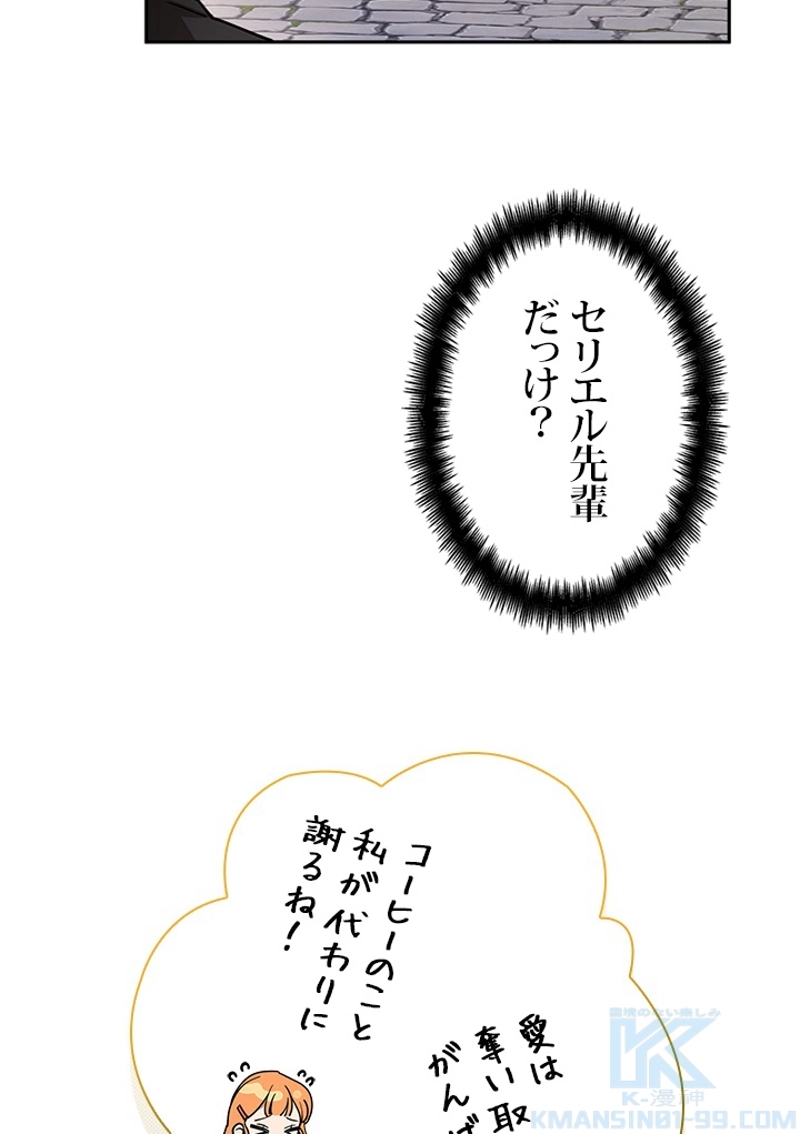 セリエル先輩
だっけ？
コーヒーのこと
私が代わりに
謝るね！
愛は
奪い取
がんば
国境のない楽しみ
K-漫神
KMANSIN01-99.COM